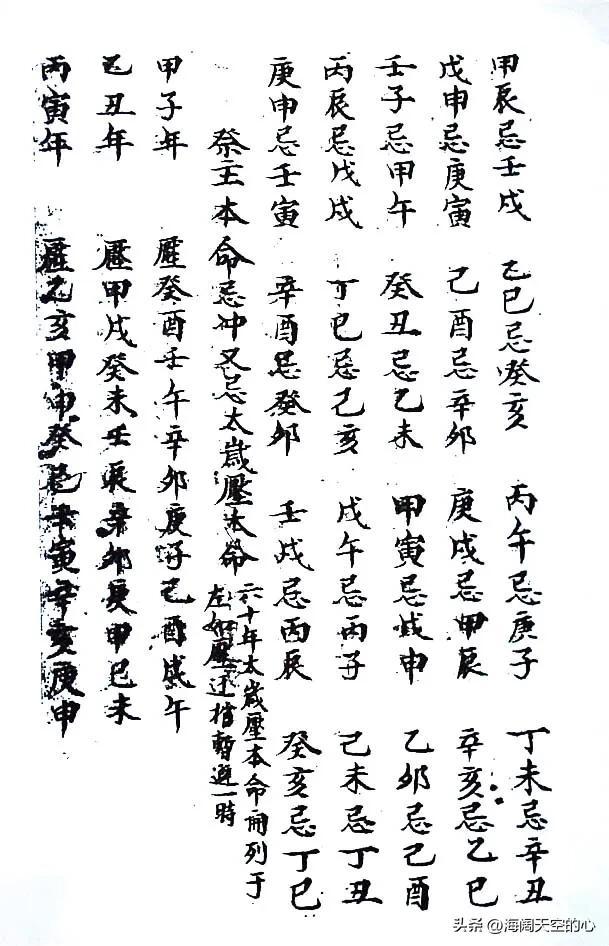 甲辰忌壬戌 乙巳忌癸亥 丙午忌庚子 丁未忌辛丑
戊申忌庚寅 己酉忌辛卯 庚戌忌甲辰 辛亥忌乙巳
壬子忌甲午 癸丑忌乙未 甲寅忌戊申 乙卯忌己酉
丙辰忌戊戌 丁巳忌己亥 戊午忌丙子 己未忌丁丑
庚申忌壬寅 辛酉忌癸卯 壬戌忌丙辰 癸亥忌丁巳
祭主本命忌冲又忌太歲壓本命
六十年太歲壓本命開列于
左如壓迁稍暫避一時
甲子年 壓癸酉壬午辛卯庚子己酉戊午
乙丑年 壓甲戌癸未壬辰辛卯庚申巳未
丙寅年 壓乙亥甲申癸巳辛寅辛亥庚申
头条 @海阔天空的心